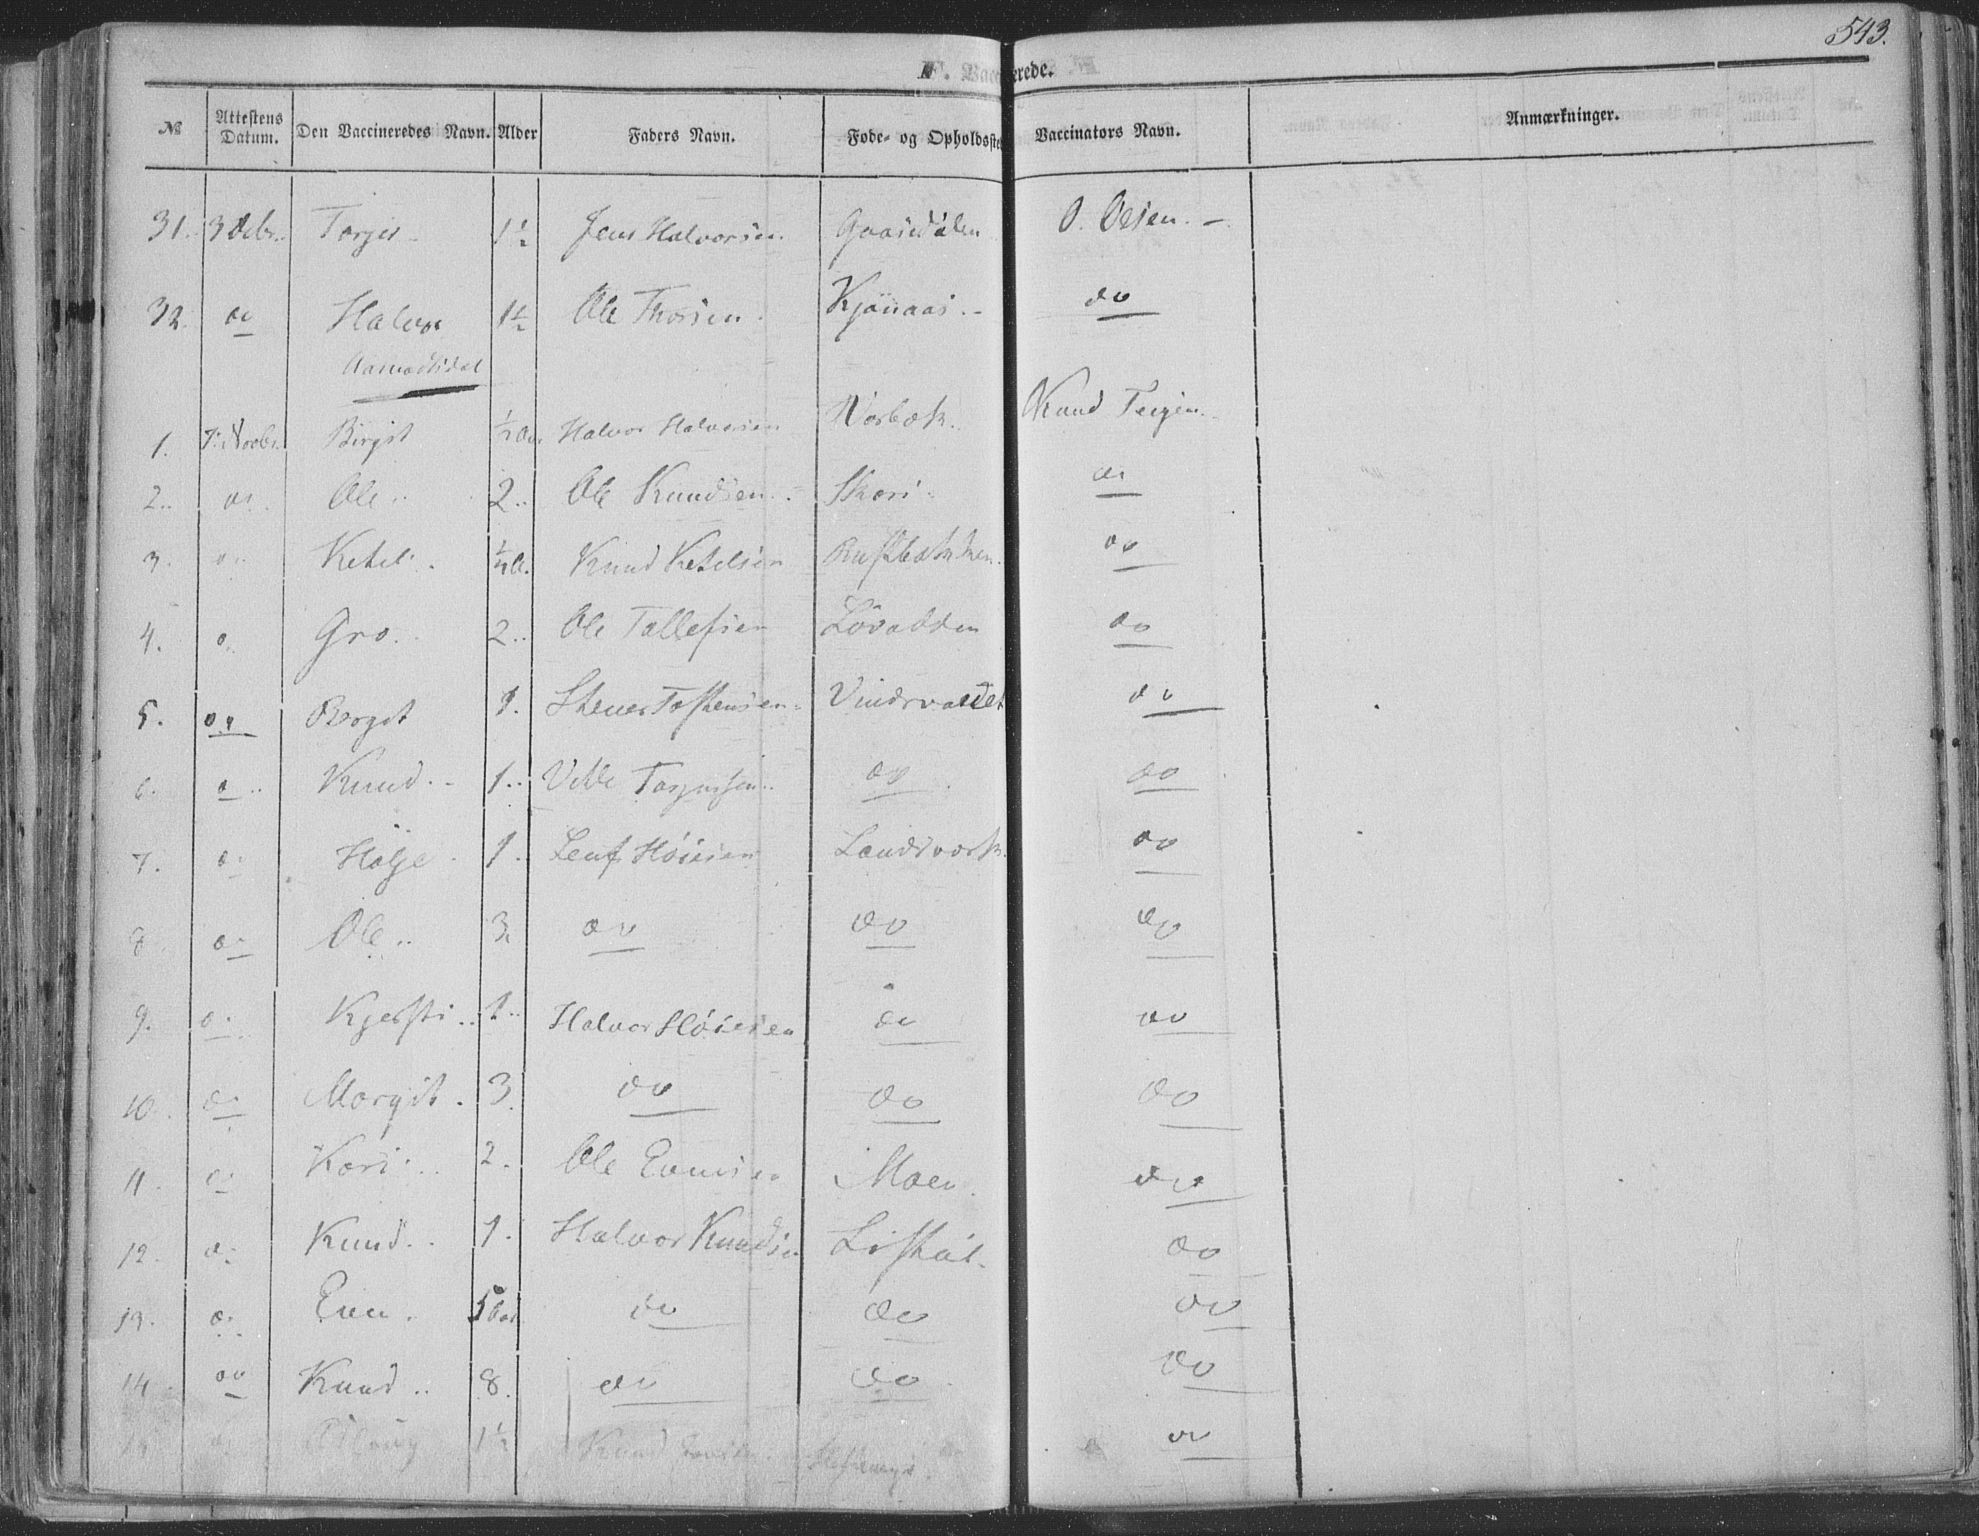 543.
F. Vaccinerede.
№ Attestens Datum. Den Vaccineredes Navn. Alder Faders Navn. Føde- og Opholdsste Vaccinators Navn. Anmærkninger.
31. 3 Debr. Torger 1½ Jens Halvorsen Gaasedalen O. Olsen. –
32. do Halvor 1½ Ole Thorsen. Kjønaas. – do
Aamodtsdal
1. Novbr. Birgit ½ Halvor Halvorsen Norbæk. Knud Teigen.
2. do Ole 2.. Ole Knudsen Skori do
3. do Ketel ½ Knud Ketelsen do
4. do Gro. 2.. Ole Tallefsen do
5. do Borgit 1. Stener Tostensen Vindsvaldet do
6. do Knud. 1.. do do
7. do Holje 1. Leuf Høiesen Landsværk do
8. do Ole.. 3. do do do
9. do Kjersti.. 1.. Halvor Høiesen do do
10. do Margit. 3. do do do
11. do Kari 2. Ole Evensen Moen. do
12. do Knud.. 1. Halvor Knudsen do
13. do Even. 5 do do do
14. do Knud.. 8. do do do
15 do 1½ Knud do